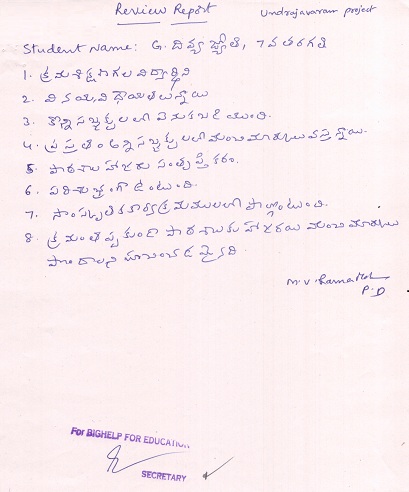 Review Report
Undrajavaram project
Student Name: G. దివ్య జ్యోతి, 7వ తరగతి
1. క్రమశిక్షణ గల విద్యార్థిని
2. వినయ, విధేయతలున్నాయి
3. కొన్ని సబ్జెక్టులలో వెనుకబడి యుంది.
4. ప్రస్తుతం అన్ని సబ్జెక్టులలో మంచి మార్కులు వస్తున్నాయి.
5. పాఠశాల హాజరు సంతృప్తికరం.
6. పరిశుభ్రంగా ఉంటుంది.
7. సాంస్కృతిక కార్యక్రమములలో పాల్గొంటుంది.
8. క్రమం తప్పకుండా పాఠశాలకు హాజరయి మంచి మార్కులు
పొందాలని సూచించడమైనది
M.V.
P.D
For BIGHELP FOR EDUCATION
SECRETARY